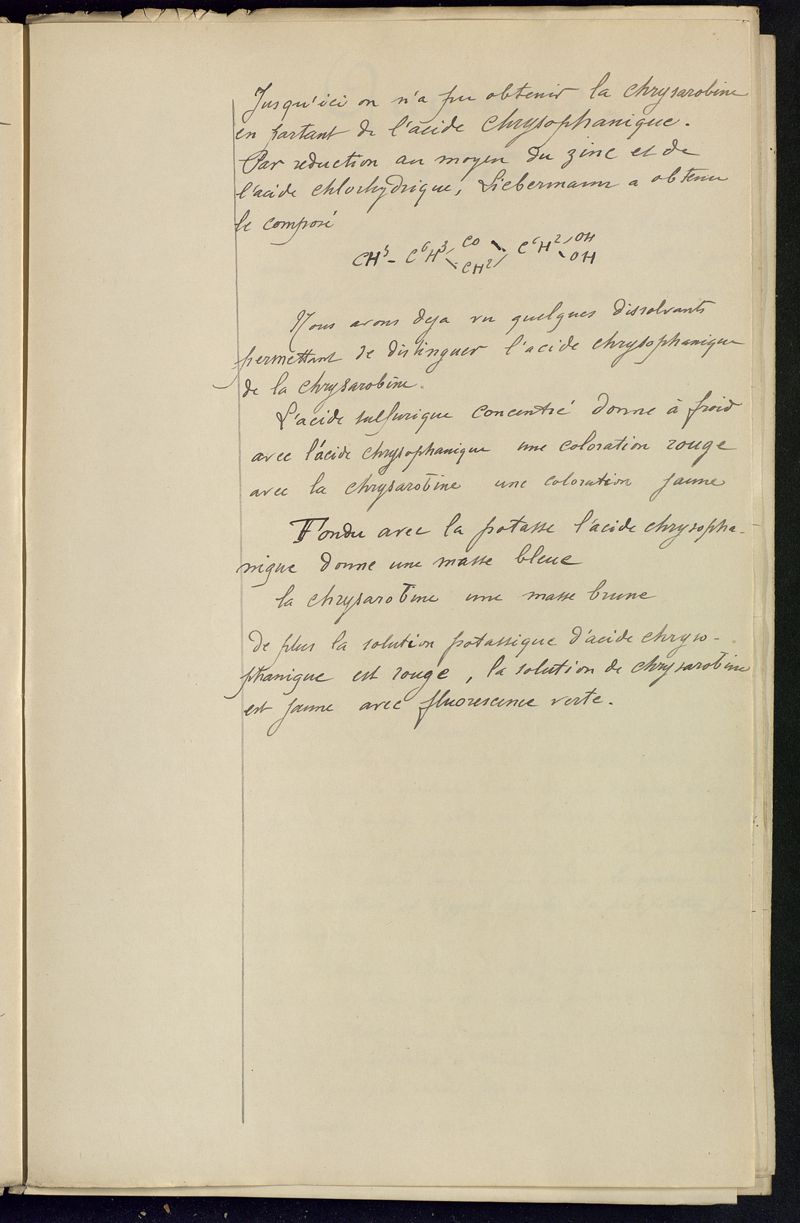 Jusqu'ici on n'a pu obtenir la chrysarobine
en partant de l'acide chrysophanique.
Par reduction au moyen du zinc et de
l'acide chlorhydrique, Liebermann a obtenu
le composé
CH³ - C⁶H³ < CO CH² > C⁶H² < OH OH
Nous avons deja vu quelques dissolvants
permettant de distinguer l'acide chrysophanique
de la chrysarobine.
L'acide sulfurique concentré donne à froid
avec l'acide chrysophanique une coloration rouge
avec la chrysarobine une coloration jaune
Fondu avec la potasse l'acide chrysopha-
nique donne une masse bleue
la chrysarobine une masse brune
De plus la solution potassique d'acide chryso-
phanique est rouge, la solution de chrysarobine
est jaune avec fluorescence verte.